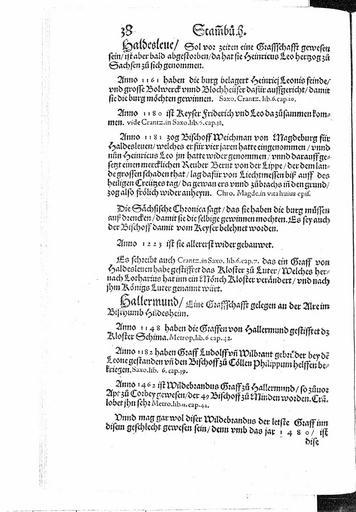 38 Stam̃bůch.
Haldesleue/ Sol vor zeiten eine Graffschafft gewesen
sein/ ist aber bald abgestorben/ da hat sie Heinricus Leo hertzog zu
Sachsen zů sich genommen.
Anno 1161 haben die burg belagert Heinrici Leonis feinde/
vnd grosse Bolwerck vnnd Blochheuser dafür auffgericht/ damit
sie die burg möchten gewinnen. Saxo. Crantz. lib. 6. cap. 10.
Anno 1180 ist Keyser Friderich vnd Leo da zůsammen kom-
men. vide Crantz. in Saxo. lib. 5. cap. 31.
Anno 1181 zog Bischoff Weichman von Magdeburg für
Haldesleuen/ welches er für vier jaren hatte eingenommen/ vnnd
nůn Heinricus Leo jm hatte wider genommen/ vnnd darauff ge-
setzt einen mercklichen Reuber Bernt von der Lippe/ der dem lan-
de grossen schaden that/ lag dafür von Liechtmessen biß auff des
heiligen Creutzes tag/ da gewan ers vnnd zůbrachs in den grund/
zog also frölich wider anheym. Chro. Magde. in vita huius epis.
Die Sächsische Chronica sagt/ das sie haben die burg müssen
auß drencken/ damit sie die selbige gewinnen mochten. Es sey auch
der Bischoff damit vom Keyser belehnet worden.
Anno 1223 ist sie allererst wider gebauwet.
Es schreibt auch Crantz. in Saxo. lib. 6. cap. 7. das ein Graff von
Haldesleuen habe gestifftet das Kloster zů Luter/ Welches her-
nach Lotharius hat im ein Mönch Kloster verändert/ vnd nach
jhm Königs Luter genannt würt.
Hallermund/ Eine Graffschafft gelegen an der Alre im
Bisthumb Hildesheim.
Anno 1148 haben die Graffen von Hallermund gestifftet dz
Kloster Schima. Metrop. lib. 6. cap. 42.
Anno 1182 haben Graff Ludolff vñ Wilbrant gebrüder bey dẽ
Leone gestanden vñ den Bischoff zů Cöllen Philippum helffen be-
kriegen. Saxo. lib. 6. cap. 39.
Anno 1462 ist Wildebrandus Graff zů Hallermund/ so zůuor
Apt zů Corbey gewesen/ der 49 Bischoff zů Minden worden. Crã.
lobet jhn sehr Metro. lib. 11. cap. 44.
Vnnd mag gar wol diser Wildebrandus der letste Graff im
disem geschlecht gewesen sein/ denn vmb das jar 1480/ ist
dise